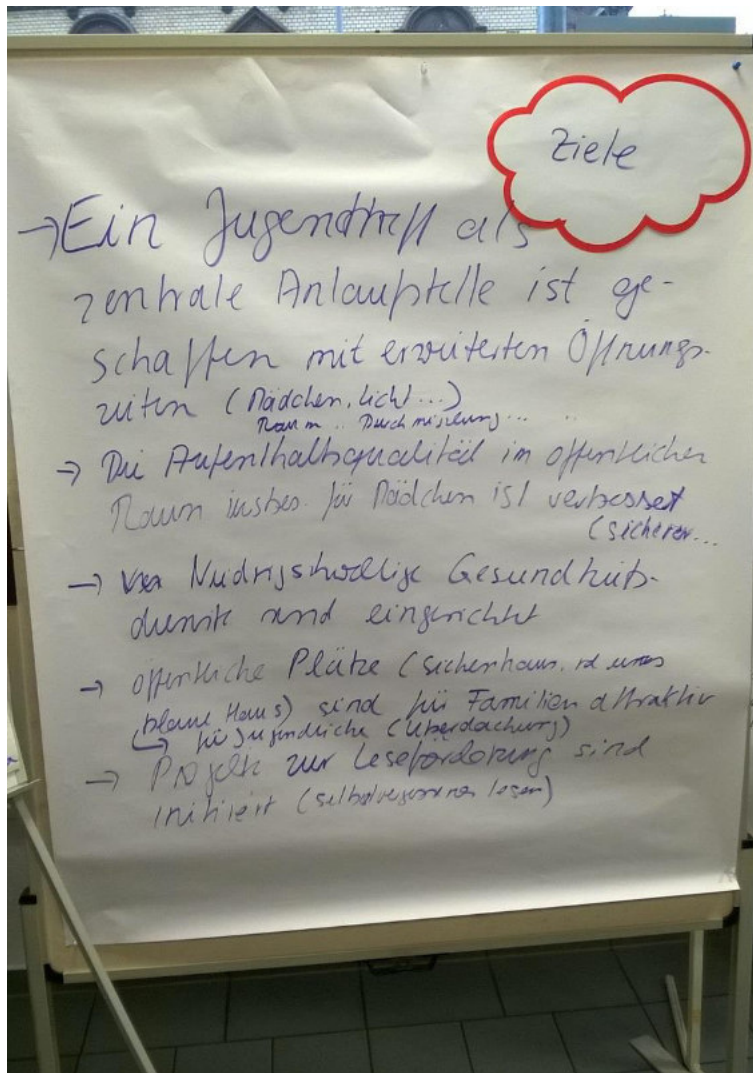 Ziele
→ Ein Jugendtreff als
zentrale Anlaufstelle ist ge-
schaffen mit erweiterten Öffnungs-
zeiten (Mädchen, Licht...)
Raum .. Durchmischung... ..
→ Die Aufenthaltsqualität im öffentlichen
Raum insbes. für Mädchen ist verbessert
(sicherer...
→ Niedrigschwellige Gesundheits-
dienste sind eingerichtet
→ öffentliche Plätze (
blaue Haus) sind für Familien attraktiv
↳ für Jugendliche (Überdachung)
→ Projekte zur Leseförderung sind
initiiert (selbstvergessenes lesen)